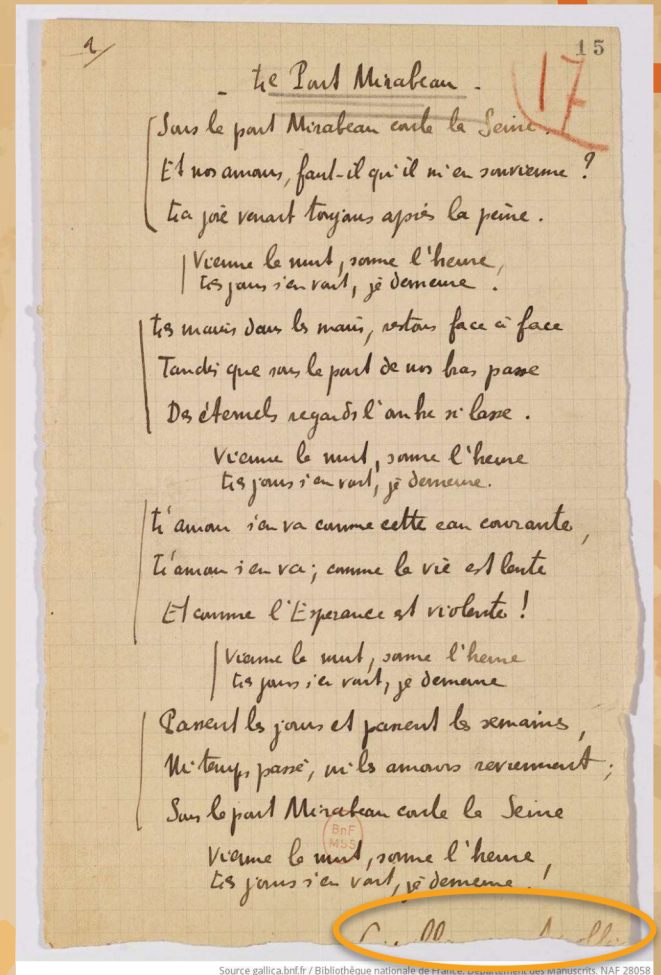 2/
15
17
Le Pont Mirabeau
Sous le pont Mirabeau coule la Seine.
Et nos amours, faut-il qu'il m'en souvienne ?
La joie venait toujours après la peine.
Vienne la nuit, sonne l'heure,
Les jours s'en vont, je demeure.
Les mains dans les mains, restons face à face
Tandis que sous le pont de nos bras passe
Des éternels regards l'onde si lasse.
Vienne la nuit, sonne l'heure
Les jours s'en vont, je demeure.
L'amour s'en va comme cette eau courante,
L'amour s'en va ; comme la vie est lente
Et comme l'Espérance est violente !
Vienne la nuit, sonne l'heure
Les jours s'en vont, je demeure
Passent les jours et passent les semaines,
Ni temps passé, ni les amours reviennent ;
Sous le pont Mirabeau coule la Seine
BnF
MSS
Vienne la nuit, sonne l'heure,
Les jours s'en vont, je demeure !
Source gallica.bnf.fr / Bibliothèque nationale de France. Département des Manuscrits. NAF 28058